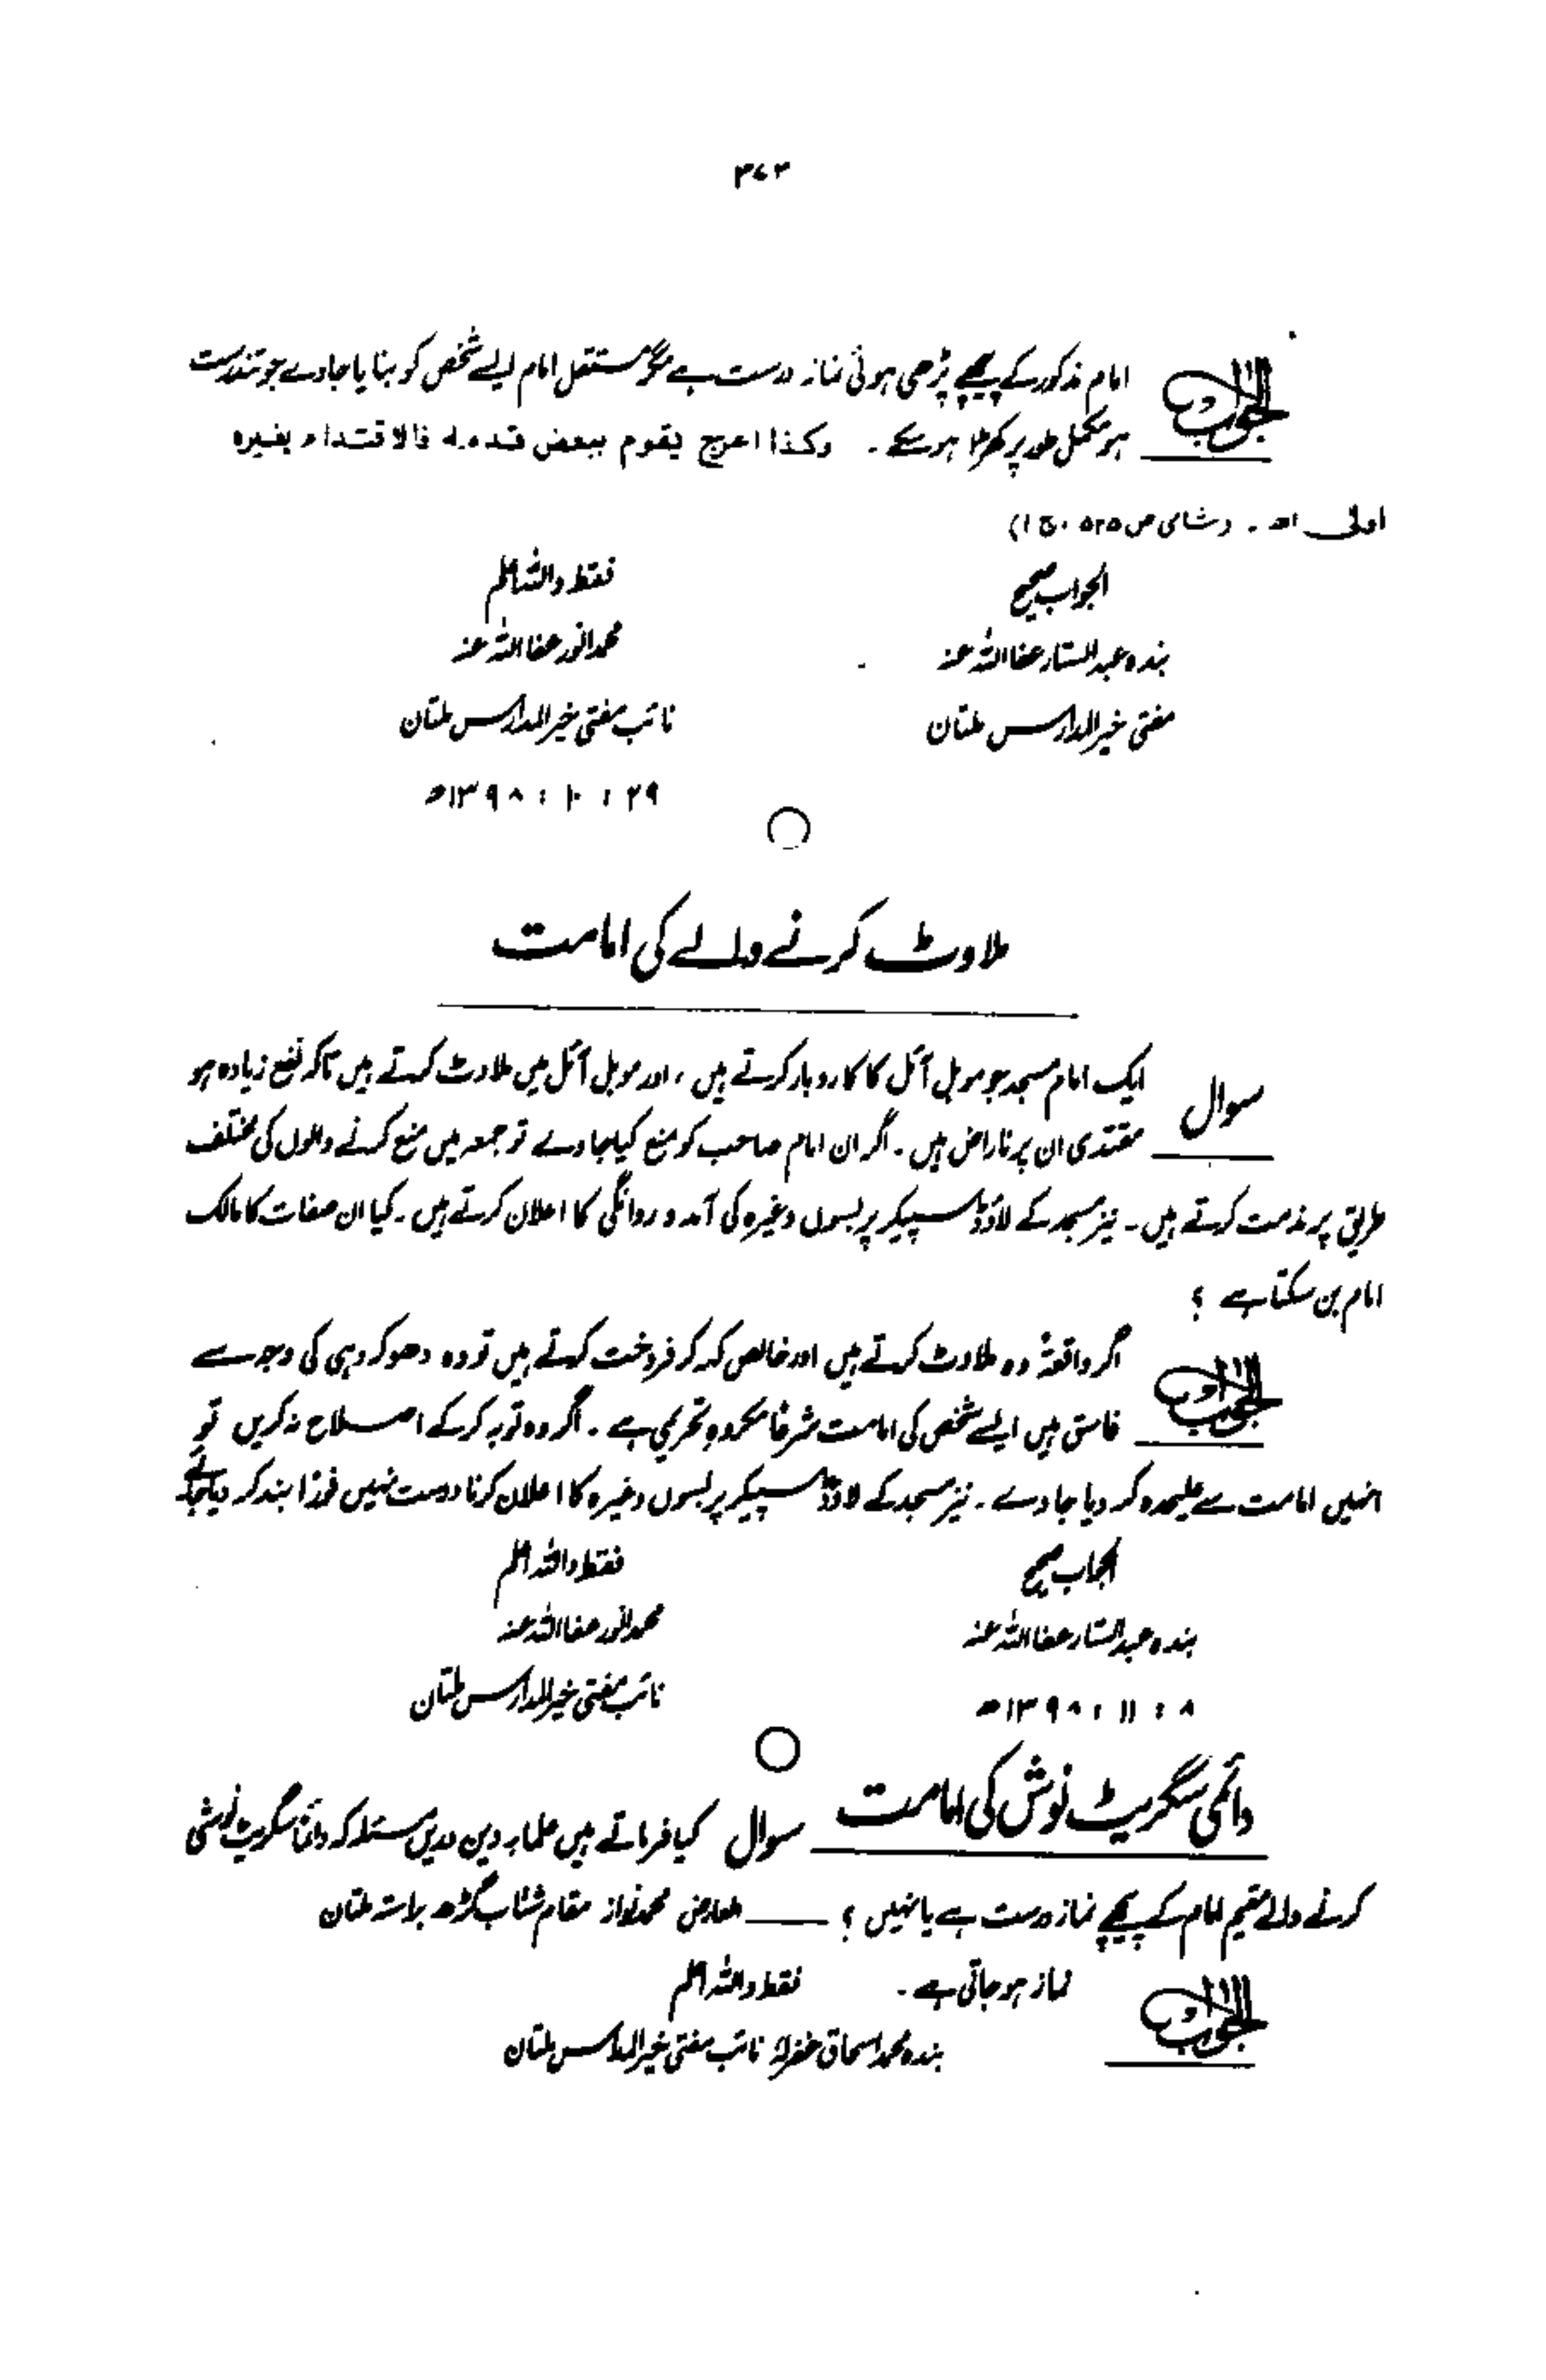 ۳۷۳
الجواب امام مذکور کے پیچھے پڑھی ہوئی نماز درست ہے مگر مستقل امام ایسے شخص کو بنایا جاوے جو تندرست
ہو مکمل طور پر کھڑا ہو سکے ۔ وكذا اعرج يقوم ببعض قدمه فالاقتداء بغيره
اولیٰ اھ ۔ (شامی ص ۵۲۵ ، ج ۱)
الجواب صحیح فقط واللہ اعلم
بندہ عبدالستار عفا اللہ عنہ محمد انور عفا اللہ عنہ
مفتی خیر المدارس ملتان نائب مفتی خیر المدارس ملتان
۲۹ : ۱۰ : ۱۳۹۸ھ
ملاوٹ کرنے والے کی امامت
سوال ایک امام مسجد جو موبل آئل کا کاروبار کرتے ہیں ، اور موبل آئل میں ملاوٹ کرتے ہیں تاکہ نفع زیادہ ہو
مقتدی ان پر ناراض ہیں ۔ اگر ان امام صاحب کو منع کیا جاوے تو جمعہ میں منع کرنے والوں کی مختلف
طریق پر مذمت کرتے ہیں ۔ نیز مسجد کے لاؤڈ سپیکر پر بسوں وغیرہ کی آمد و روانگی کا اعلان کرتے ہیں ۔ کیا ان صفات کا مالک
امام بن سکتا ہے ؟
الجواب اگر واقعۃً وہ ملاوٹ کرتے ہیں اور خالص کہہ کر فروخت کرتے ہیں تو وہ دھوکہ دہی کی وجہ سے
فاسق ہیں ایسے شخص کی امامت شرعاً مکروہ تحریمی ہے ۔ اگر وہ توبہ کر کے اصلاح نہ کریں تو
انہیں امامت سے علیحدہ کر دیا جاوے ۔ نیز مسجد کے لاؤڈ سپیکر پر بسوں وغیرہ کا اعلان کرنا درست نہیں فوراً بند کر دیا جائے
الجواب صحیح فقط واللہ اعلم
بندہ عبدالستار عفا اللہ عنہ محمد انور عفا اللہ عنہ
۸ : ۱۱ : ۱۳۹۸ھ نائب مفتی خیر المدارس ملتان
دائمی سگریٹ نوش کی امامت سوال کیا فرماتے ہیں علماء دین دریں مسئلہ کہ دائماً سگریٹ نوشی
کرنے والے مقیم امام کے پیچھے نماز درست ہے یا نہیں ؟ ــــ المعارض محمد نواز مقام شتاب گڑھ براستہ ملتان
الجواب نماز ہو جاتی ہے ۔ فقط واللہ اعلم
بندہ محمد اسحاق غفرلہ نائب مفتی خیر المدارس ملتان